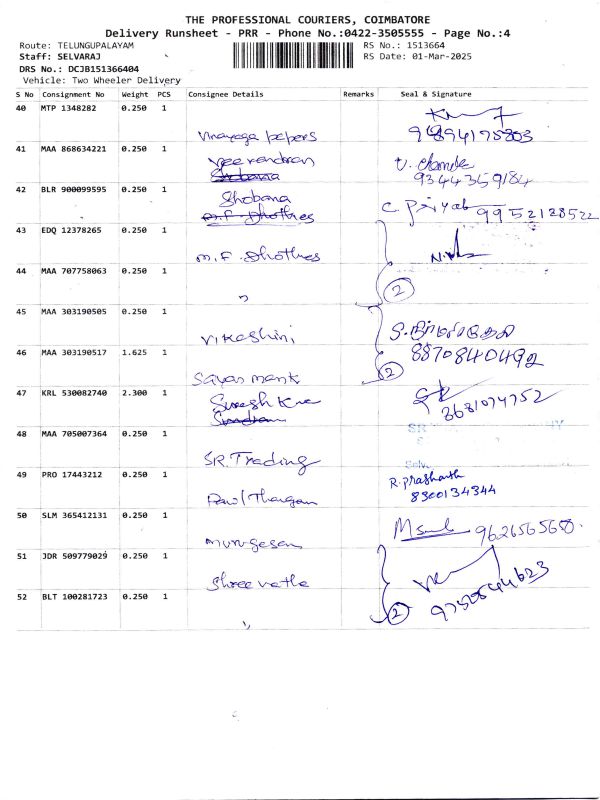 THE PROFESSIONAL COURIERS, COIMBATORE
Delivery Runsheet - PRR - Phone No.:0422-3505555 - Page No.:4
Route: TELUNGUPALAYAM RS No.: 1513664
Staff: SELVARAJ RS Date: 01-Mar-2025
DRS No.: DCJB151366404
Vehicle: Two Wheeler Delivery
S No Consignment No Weight PCS Consignee Details Remarks Seal & Signature
40 MTP 1348282 0.250 1
Vinayaga papers
41 MAA 868634221 0.250 1
Veerendran
9344359184
42 BLR 900099595 0.250 1
Shobana
m.f. Dhothies
C. Priya 9952128522
43 EDQ 12378265 0.250 1
m.f. Dhothies
44 MAA 707758063 0.250 1
"
2
45 MAA 303190505 0.250 1
Vikashini
46 MAA 303190517 1.625 1
8870840492
2
47 KRL 530082740 2.300 1
Suresh
48 MAA 705007364 0.250 1
SR. Trading
49 PRO 17443212 0.250 1
R. prashanth
8300134344
50 SLM 365412131 0.250 1
murugesan
51 JDR 509779029 0.250 1
52 BLT 100281723 0.250 1
2
"